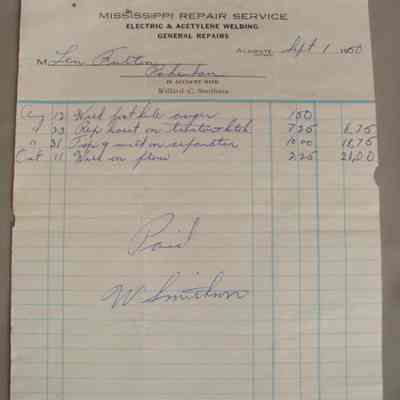 MISSISSIPPI REPAIR SERVICE
ELECTRIC & ACETYLENE WELDING
GENERAL REPAIRS
ALMONTE Sept 1 1950
M Len Fulton
Pakenham
IN ACCOUNT WITH
Willard C. Smithson
Aug 12 Weld post hole auger 1 50
" 23 Rep hoist on tractor 7 25 8.75
" 31 weld on separator 10 00 18,75
Oct 11 Weld on plow 2 25 21,00
Paid
W Smithson